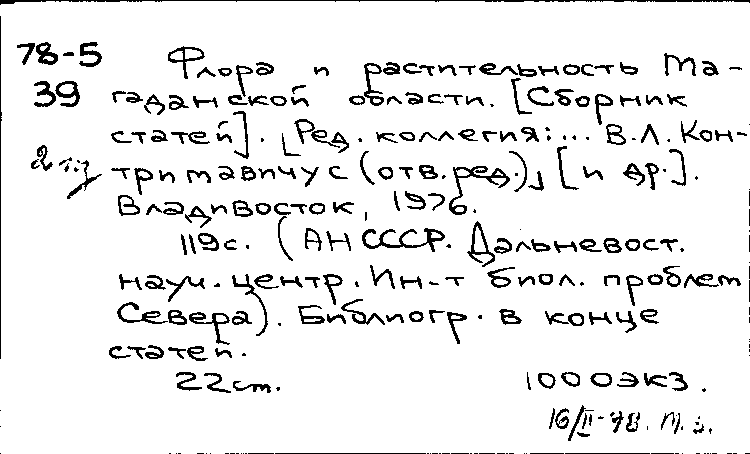 78-5
39
Флора и растительность Ма-
гаданской области. [Сборник
статей]. [Ред. коллегия: ... В.Л. Кон-
тримавичус (отв. ред.)], [и др.].
Владивосток, 1976.
119с. (АН СССР. Дальневост.
науч. центр. Ин-т биол. проблем
Севера). Библиогр. в конце
статей.
22см. 1000экз.
16/II-78.